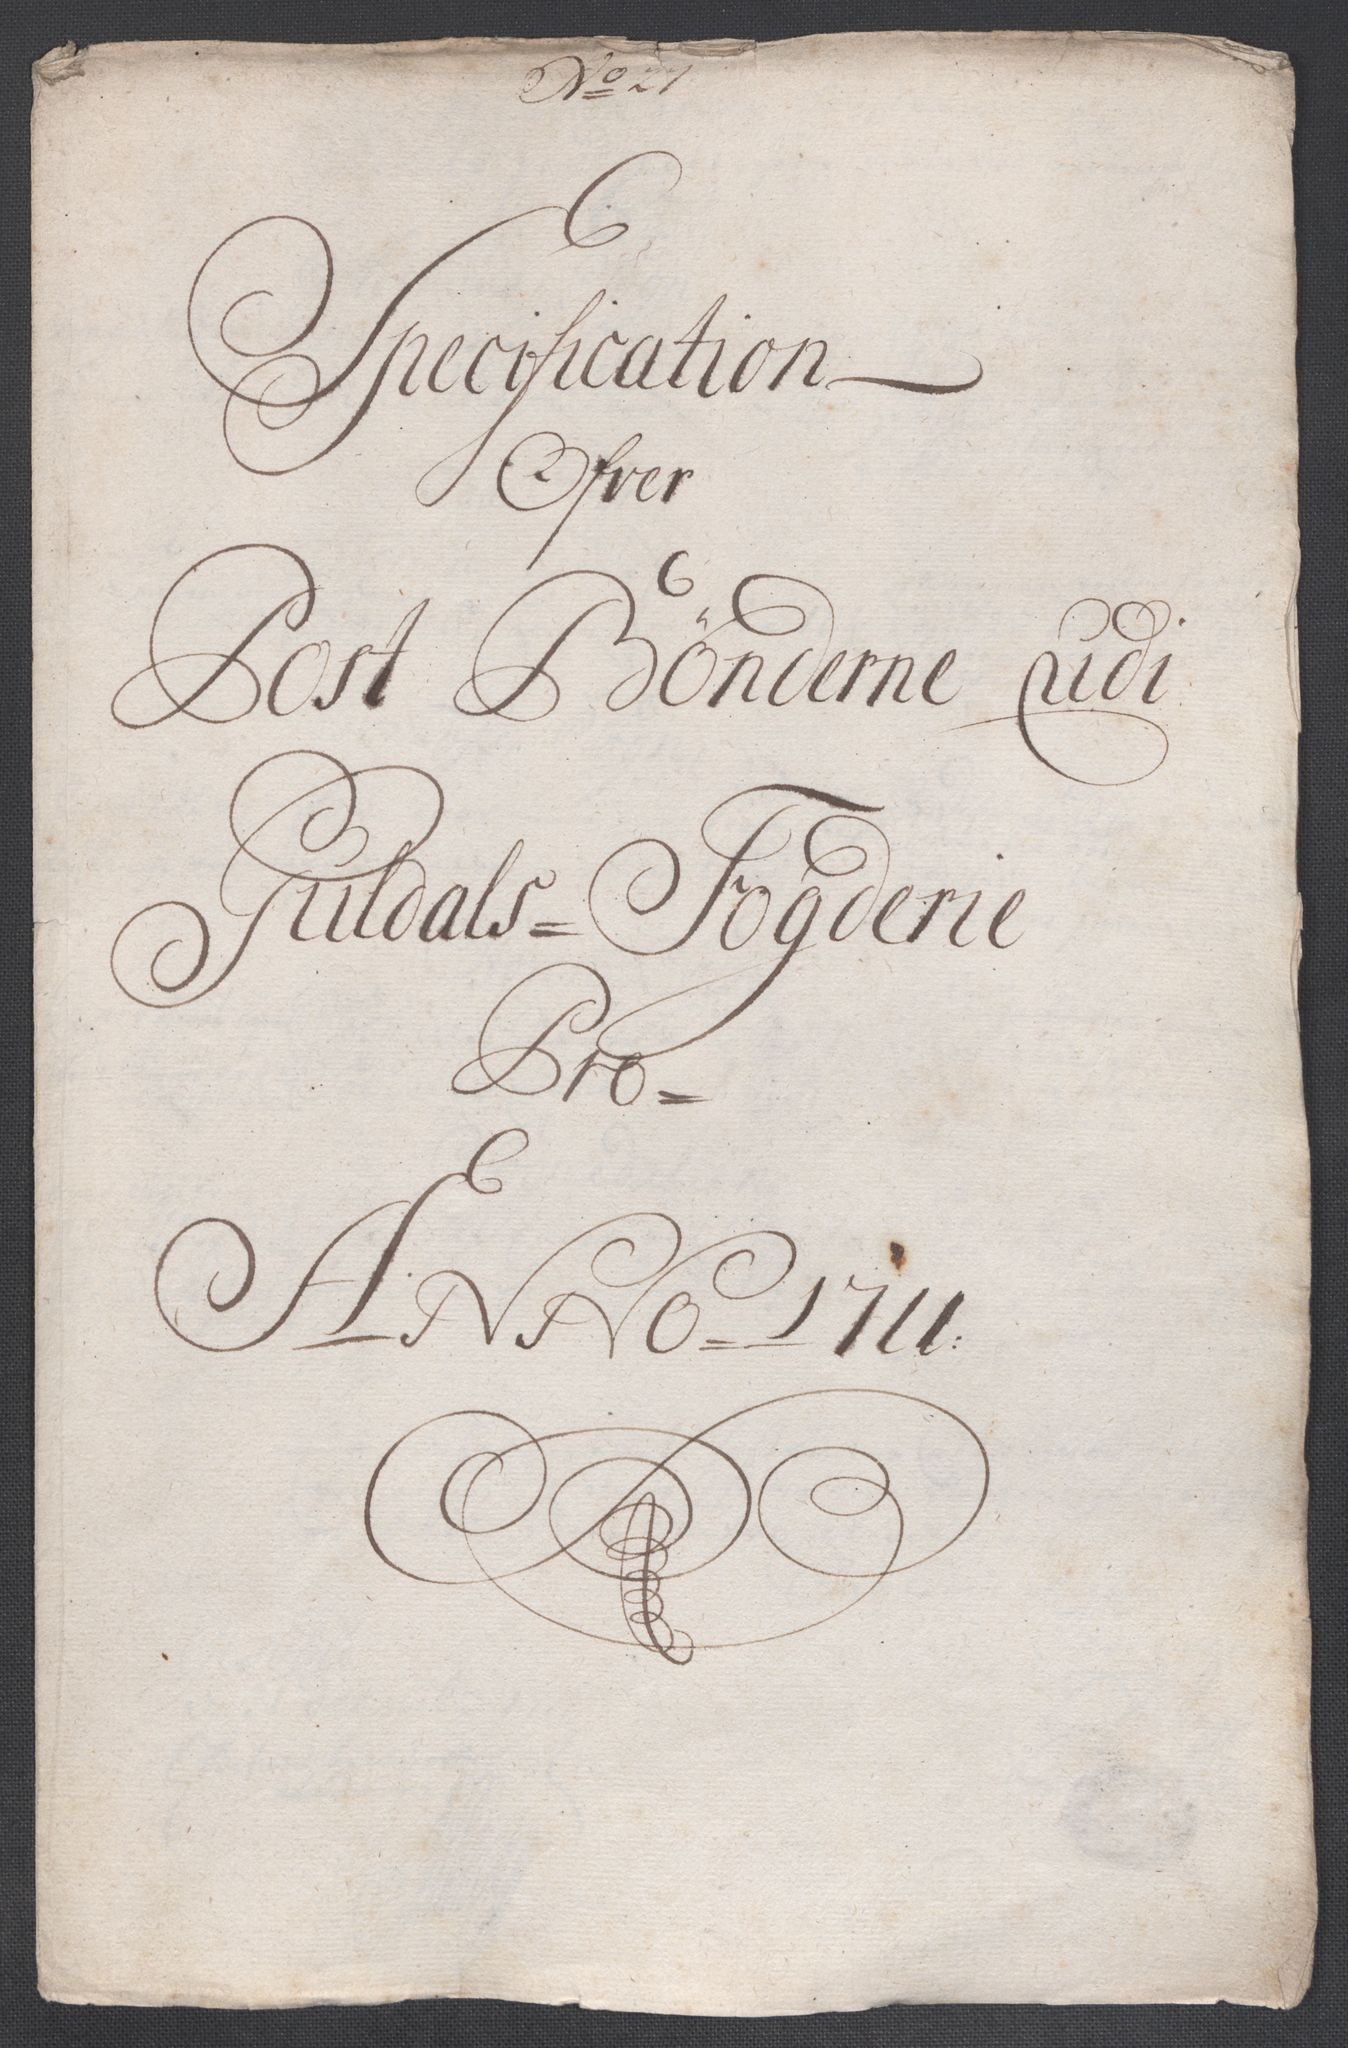 No 27
Specification
Ofver
Post Bönderne udi
Guldals= Fogderie
Pro=
ANNO=1711: